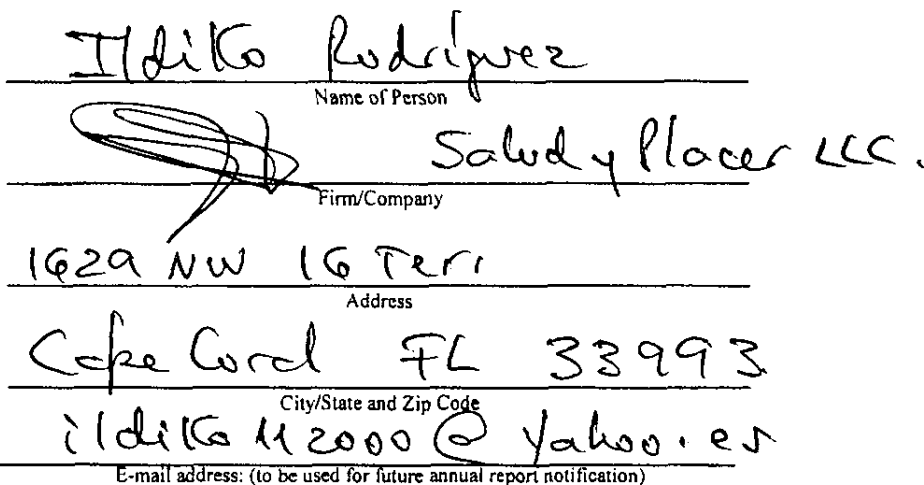 Ildiko Rodríguez
Name of Person
Salud y Placer LLC.
Firm/Company
1629 NW 16 Terr
Address
Cape Coral FL 33993
City/State and Zip Code
@ yahoo.es
E-mail address: (to be used for future annual report notification)